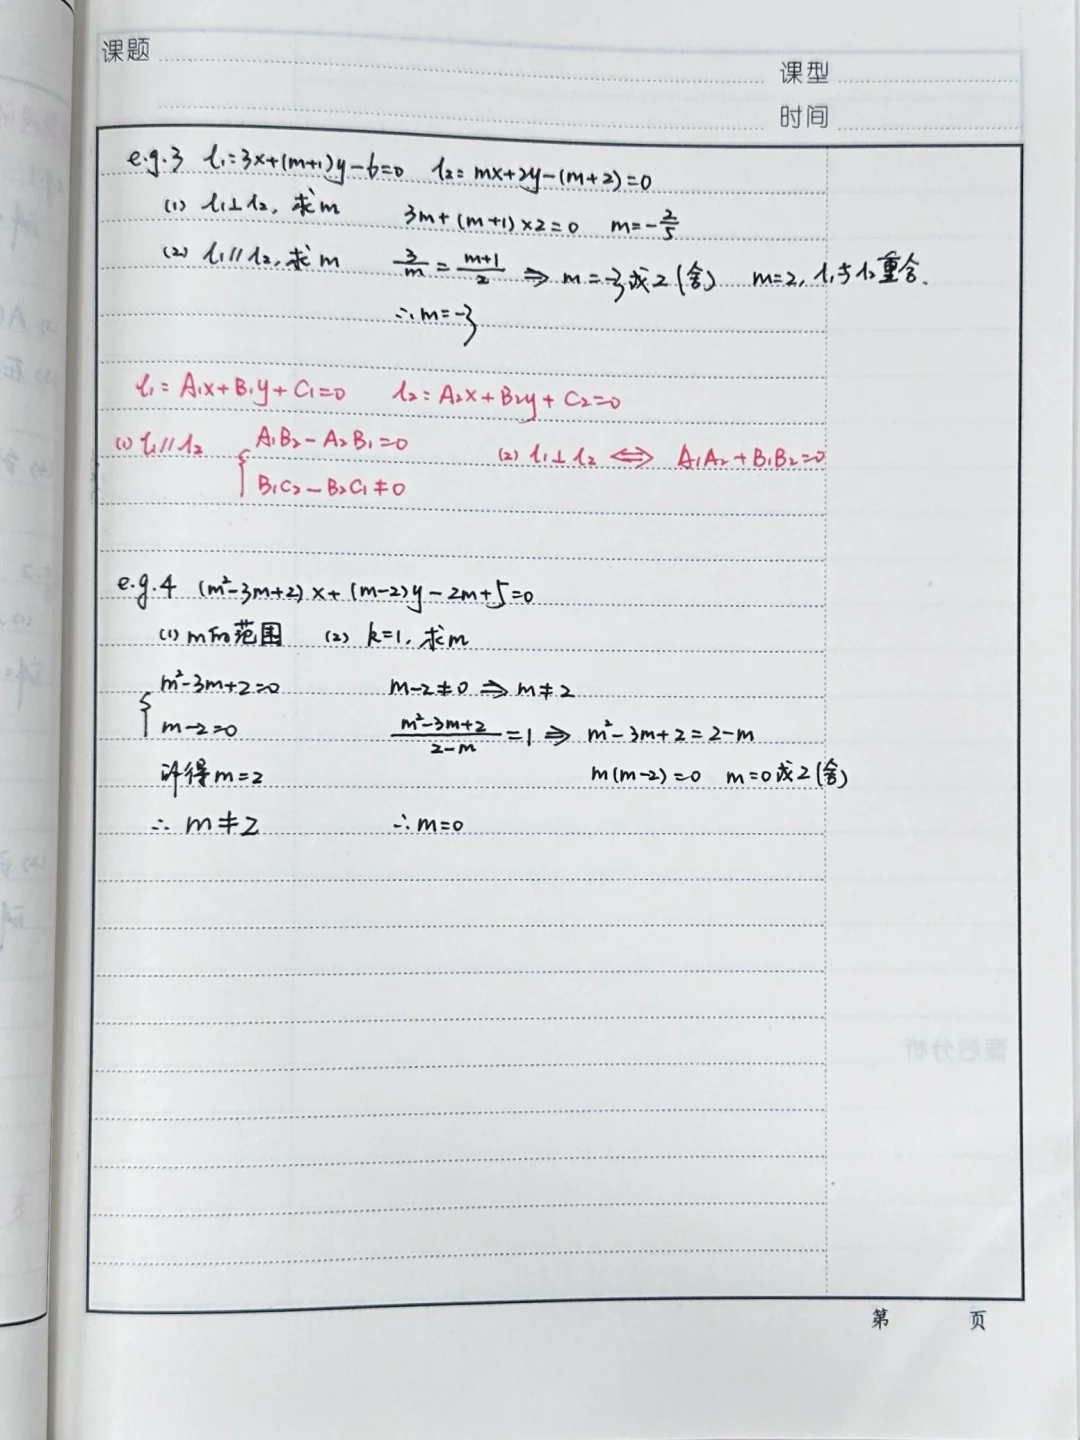 课题
课型
时间
e.g.3 l₁: 3x+(m+1)y-6=0 l₂: mx+2y-(m+2)=0
(1) l₁⊥l₂, 求m 3m+(m+1)×2=0 m=-2/5
(2) l₁//l₂, 求m 3/m = (m+1)/2 ⇒ m=-3或2(舍) m=2, l₁与l₂重合.
∴m=-3
l₁: A₁x+B₁y+C₁=0 l₂: A₂x+B₂y+C₂=0
(1) l₁//l₂ { A₁B₂-A₂B₁=0 (2) l₁⊥l₂ ⇔ A₁A₂+B₁B₂=0
B₁C₂-B₂C₁≠0
e.g.4 (m²-3m+2)x+(m-2)y-2m+5=0
(1) m的范围 (2) k=1, 求m
{ m²-3m+2=0 m-2≠0 ⇒ m≠2
m-2=0 (m²-3m+2)/(2-m)=1 ⇒ m²-3m+2=2-m
解得m=2 m(m-2)=0 m=0或2(舍)
∴ m≠2 ∴m=0
第 页